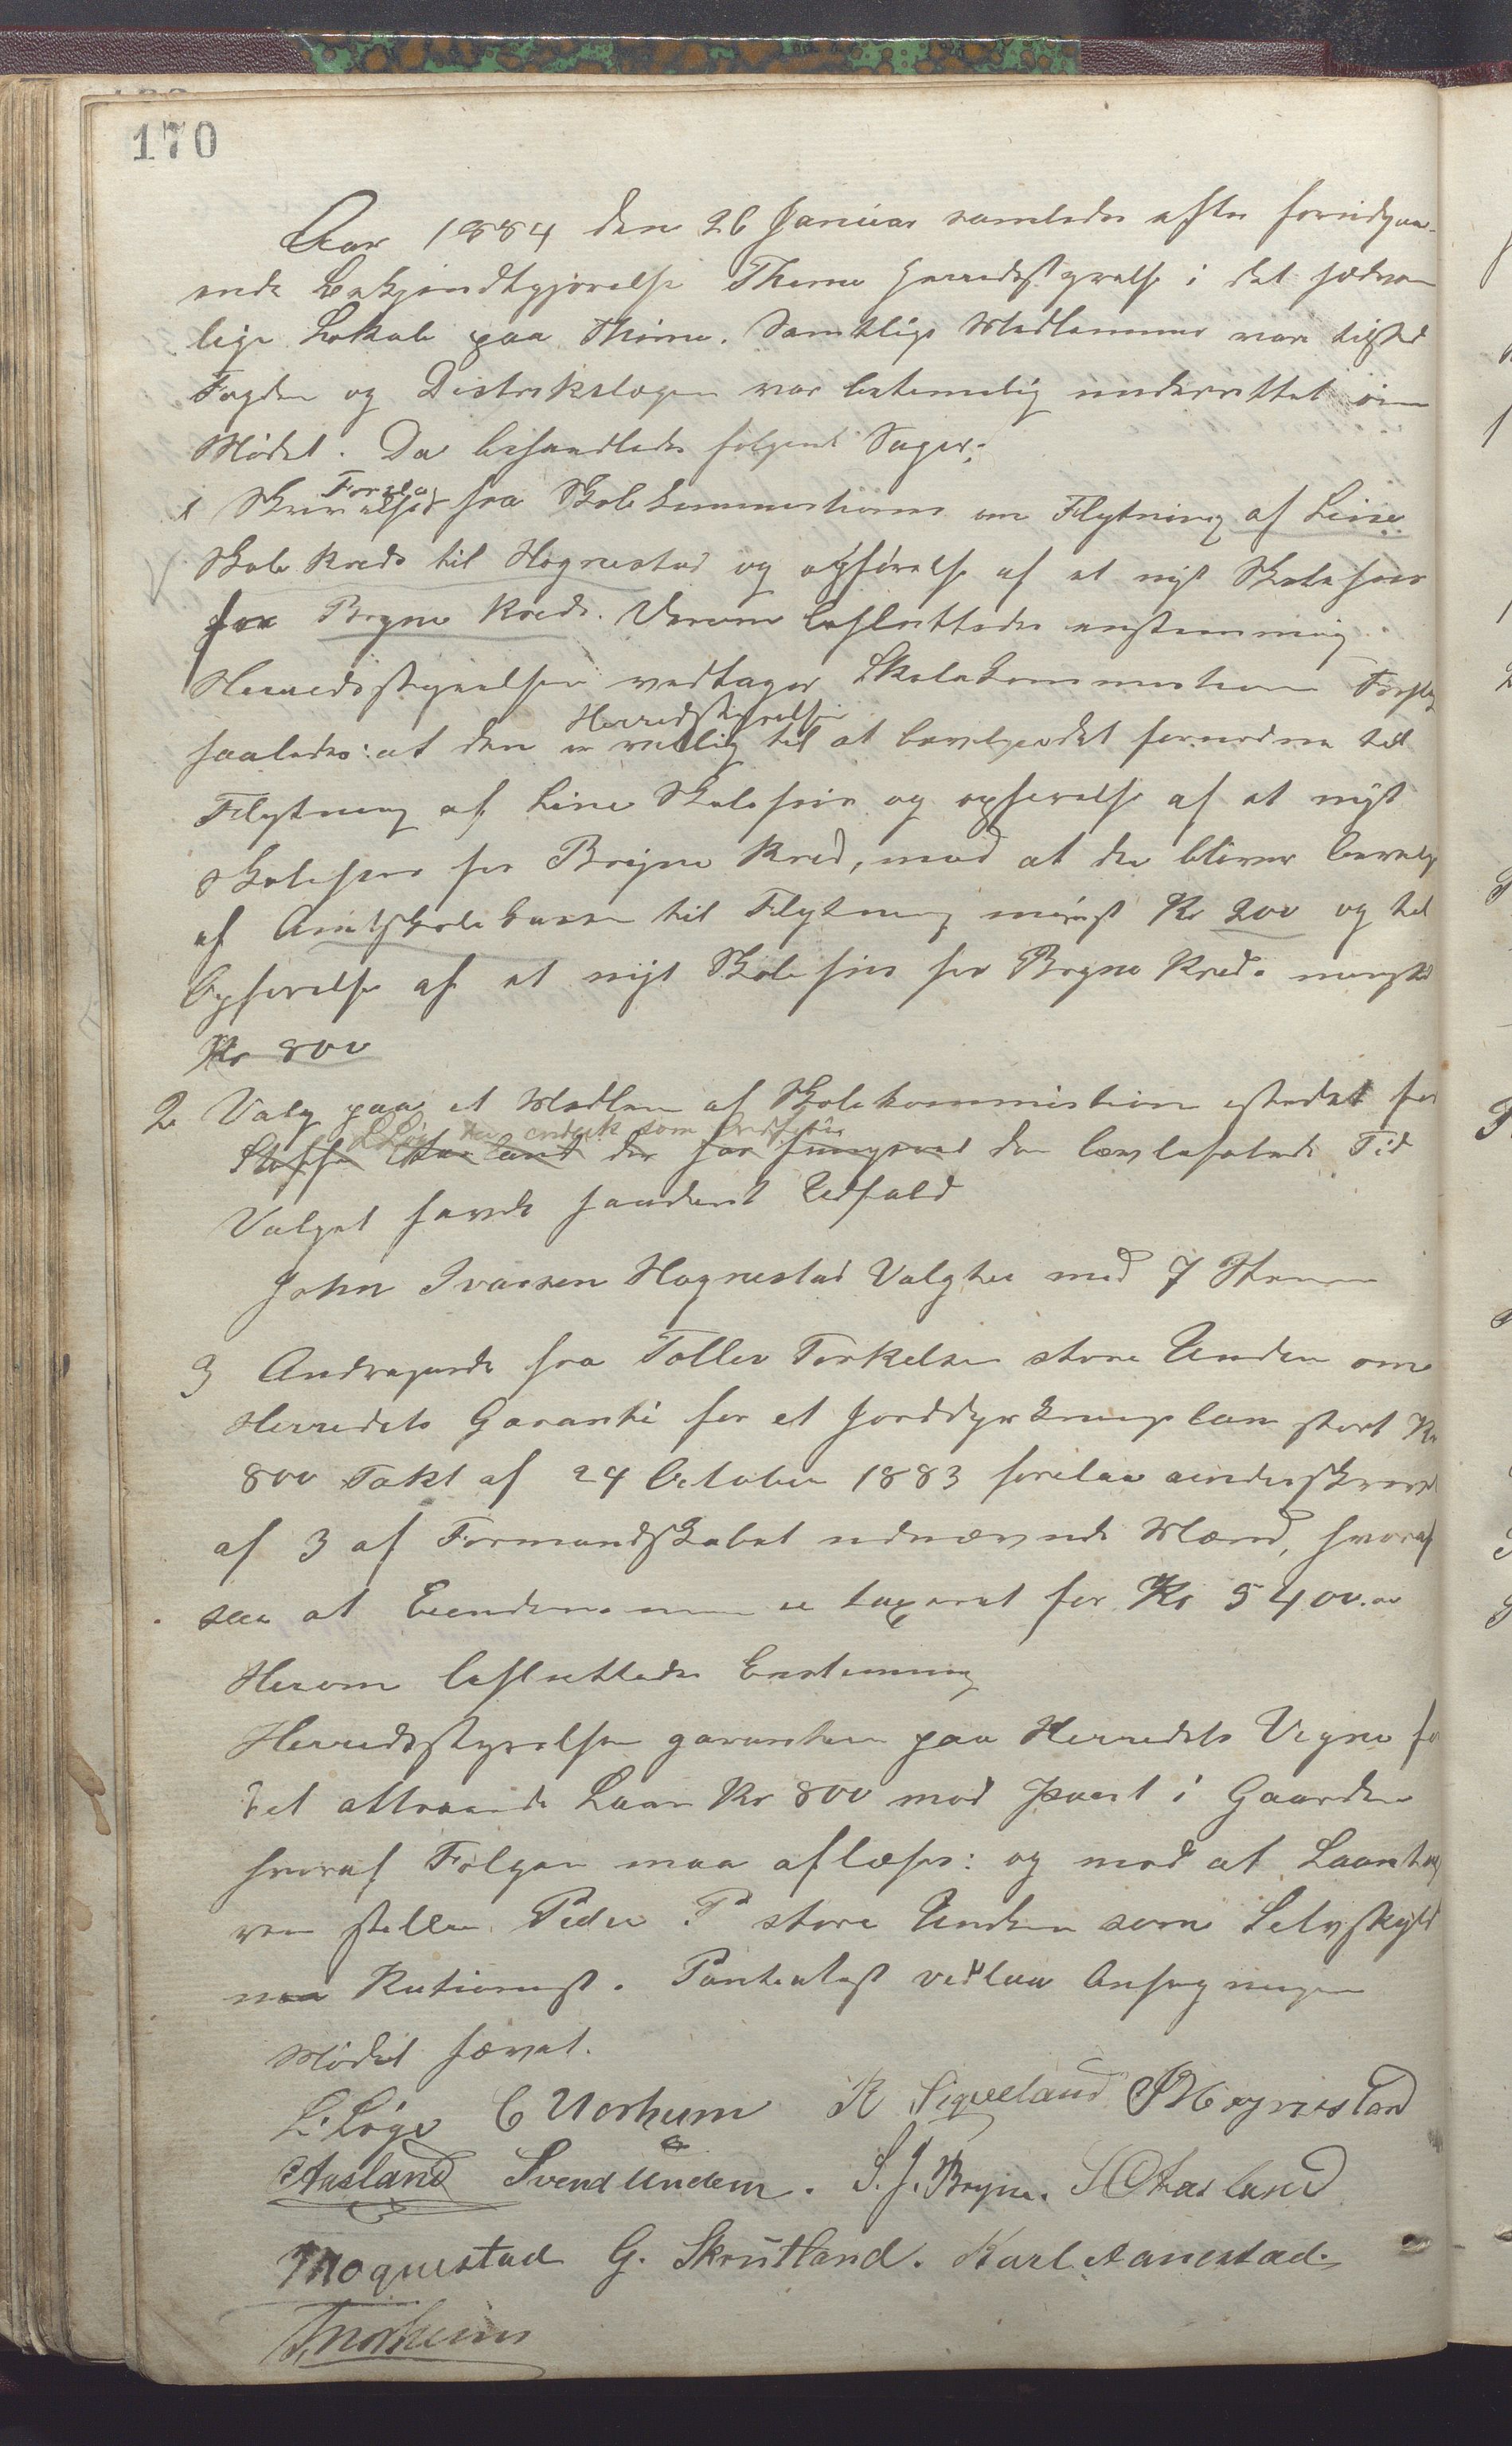 170
Aar 1884 den 26 Januar samledes efter foridgaa-
ende Bekjendtgjørelse Thime Herredsstyrelse i det sædvan
lige Lokale paa Thime. Samtlige Medlemmer vare tilsted
Fogden og Distriktslægen var betimelig underrettet om
Mødet. Da behandledes følgende Sager:
Forslag
1 Skrivelse fra Skolekommisionen om Flytning af Line
Skole Kreds til Hognestad og opførelse af et nyt Skolehus
for Bryne Kreds. Derom besluttedes enstemmig
Herredsstyrelsen vedtager Skolekommisionens Forslag
Herredsstyrelsen
saaledes: at den er villig til at bevilge det fornødne til
Flytning af Line Skolehus og opførelse af et nyt
Skolehus for Bryne Kreds, mod at der bliver bevilg
af Amtsskolekassen til Flytning mindst Kr 200 og til
Opførelse af et nyt Skolehus for Bryne Kreds mindst
Kr 800
2 Valg paa et Medlem af Skolekommisionen istedet for
L Løge
Steffen Aasland der har fungeret den lovbefalede Tid
Valget havde saadant Udfald
John Ivarsen Hognestad Valgtes med 7 Stemmer
3 Andragende fra Tollev Torkelsen store Undem om
Herredets Garanti for et Jorddyrkningslaan stort Kr
800 Takt af 24 October 1883 forelaa underskrevet
af 3 af Formandskabet udnævnde Mænd, hvoraf
saa at Eiendommen er taxeret for Kr 5400.00
Herom besluttedes Enstemmig
Herredsstyrelsen garanterer paa Herredets Vegne for
det attraaede Laan Kr 800 mod Pant i Gaarden
hvoraf Følgen maa aflæses: og mod at Laantag
ren stiller Peder P store Undem som Selvskyld
ner Kationist. Panteatest vedlaa Ansøgningen
Mødet hævet.
L. Løge C Norheim R Sigveland J Hognestad
Aasland Svend Undem. S. J. Bryne. S O Aasland
J Hognestad G. Skrutland. Karl Aanestad.
T Norheim